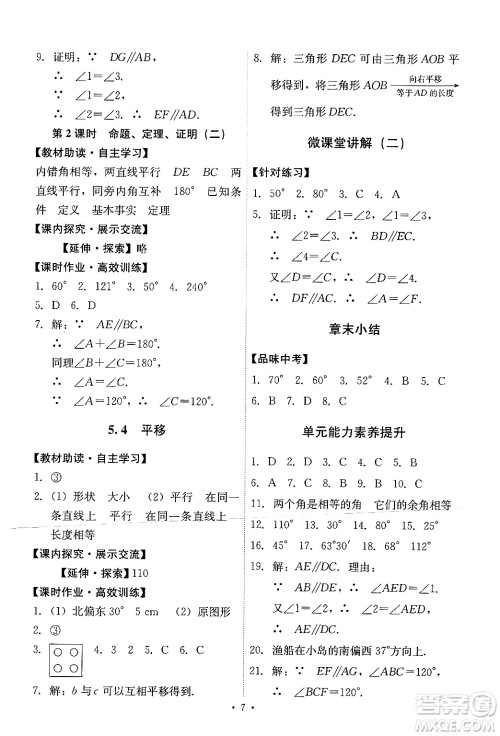 9. 证明：∵　DG∥AB，
∴　∠1=∠3.
∵　∠1=∠2，
∴　∠2=∠3，　∴　EF∥AB.
第2课时　命题、定理、证明（二）
【教材助读·自主学习】
内错角相等，两直线平行　DE　BC　两
直线平行，同旁内角互补　180°　已知条
件　定义　基本事实　定理
【课内探究·展示交流】
【延伸·探索】略
【课时作业·高效训练】
1. 60°　2. 121°　3. 120°　4. 120°
5. D　6. D
7. 解：∵　AE∥BC，
∴　∠A+∠B=180°.
同理∠B+∠C=180°.
∴　∠A=∠C.
5.4　平移
【教材助读·自主学习】
1. ③
2.（1）形状　大小　（2）平行　在同一
条直线上　平行　在同一条直线上
长度相等
【课内探究·展示交流】
【延伸·探索】110
【课时作业·高效训练】
1.（1）北偏东30°　5 cm　（2）原图形
2. ③
3.　4. 3　2　5. C　6. A
7. 解：b与c可以互相平移得到.
8. 解：三角形DEC可由三角形AOB平
移得到，将三角形AOB 向右平移 等于AD的长度
得到三角形DEC.
微课堂讲解（二）
【针对练习】
1. 50°　2. B　3. B　4. C
5. 证明：∵　∠1=∠2，∠1=∠3，
∴　∠2=∠3，　∴　BD∥CE，
∴　∠4=∠C.
又∵　∠C=∠D，　∴　∠D=∠4，
∴　DF∥AC，　∴　∠A=∠F.
章末小结
【品味中考】
1. 70°　2. 60°　3. 52°　4. B　5. C
6. B　7. D　8. A
单元能力素养提升
1. D　2. D　3. C　4. C　5. B
6. A　7. C　8. B　9. A　10. D
11. 两个角是相等的角　它们的余角相等
12. 90°　13. 110°　14. 115°　15. 25°
16. 45°　17. 63°30′　18. 68°　124°
19. 解：AE∥DC. 理由：
∵　AB∥DE，　∴　∠1=∠AED.
∵　∠1=∠2，　∴　∠AED=∠2，
∴　AE∥DC.
20. 渔船在小岛的南偏西15°方向上.
21. 解：∵　EF∥AG，　∠A=60°，
∴　∠BCF=120°.
· 7 ·